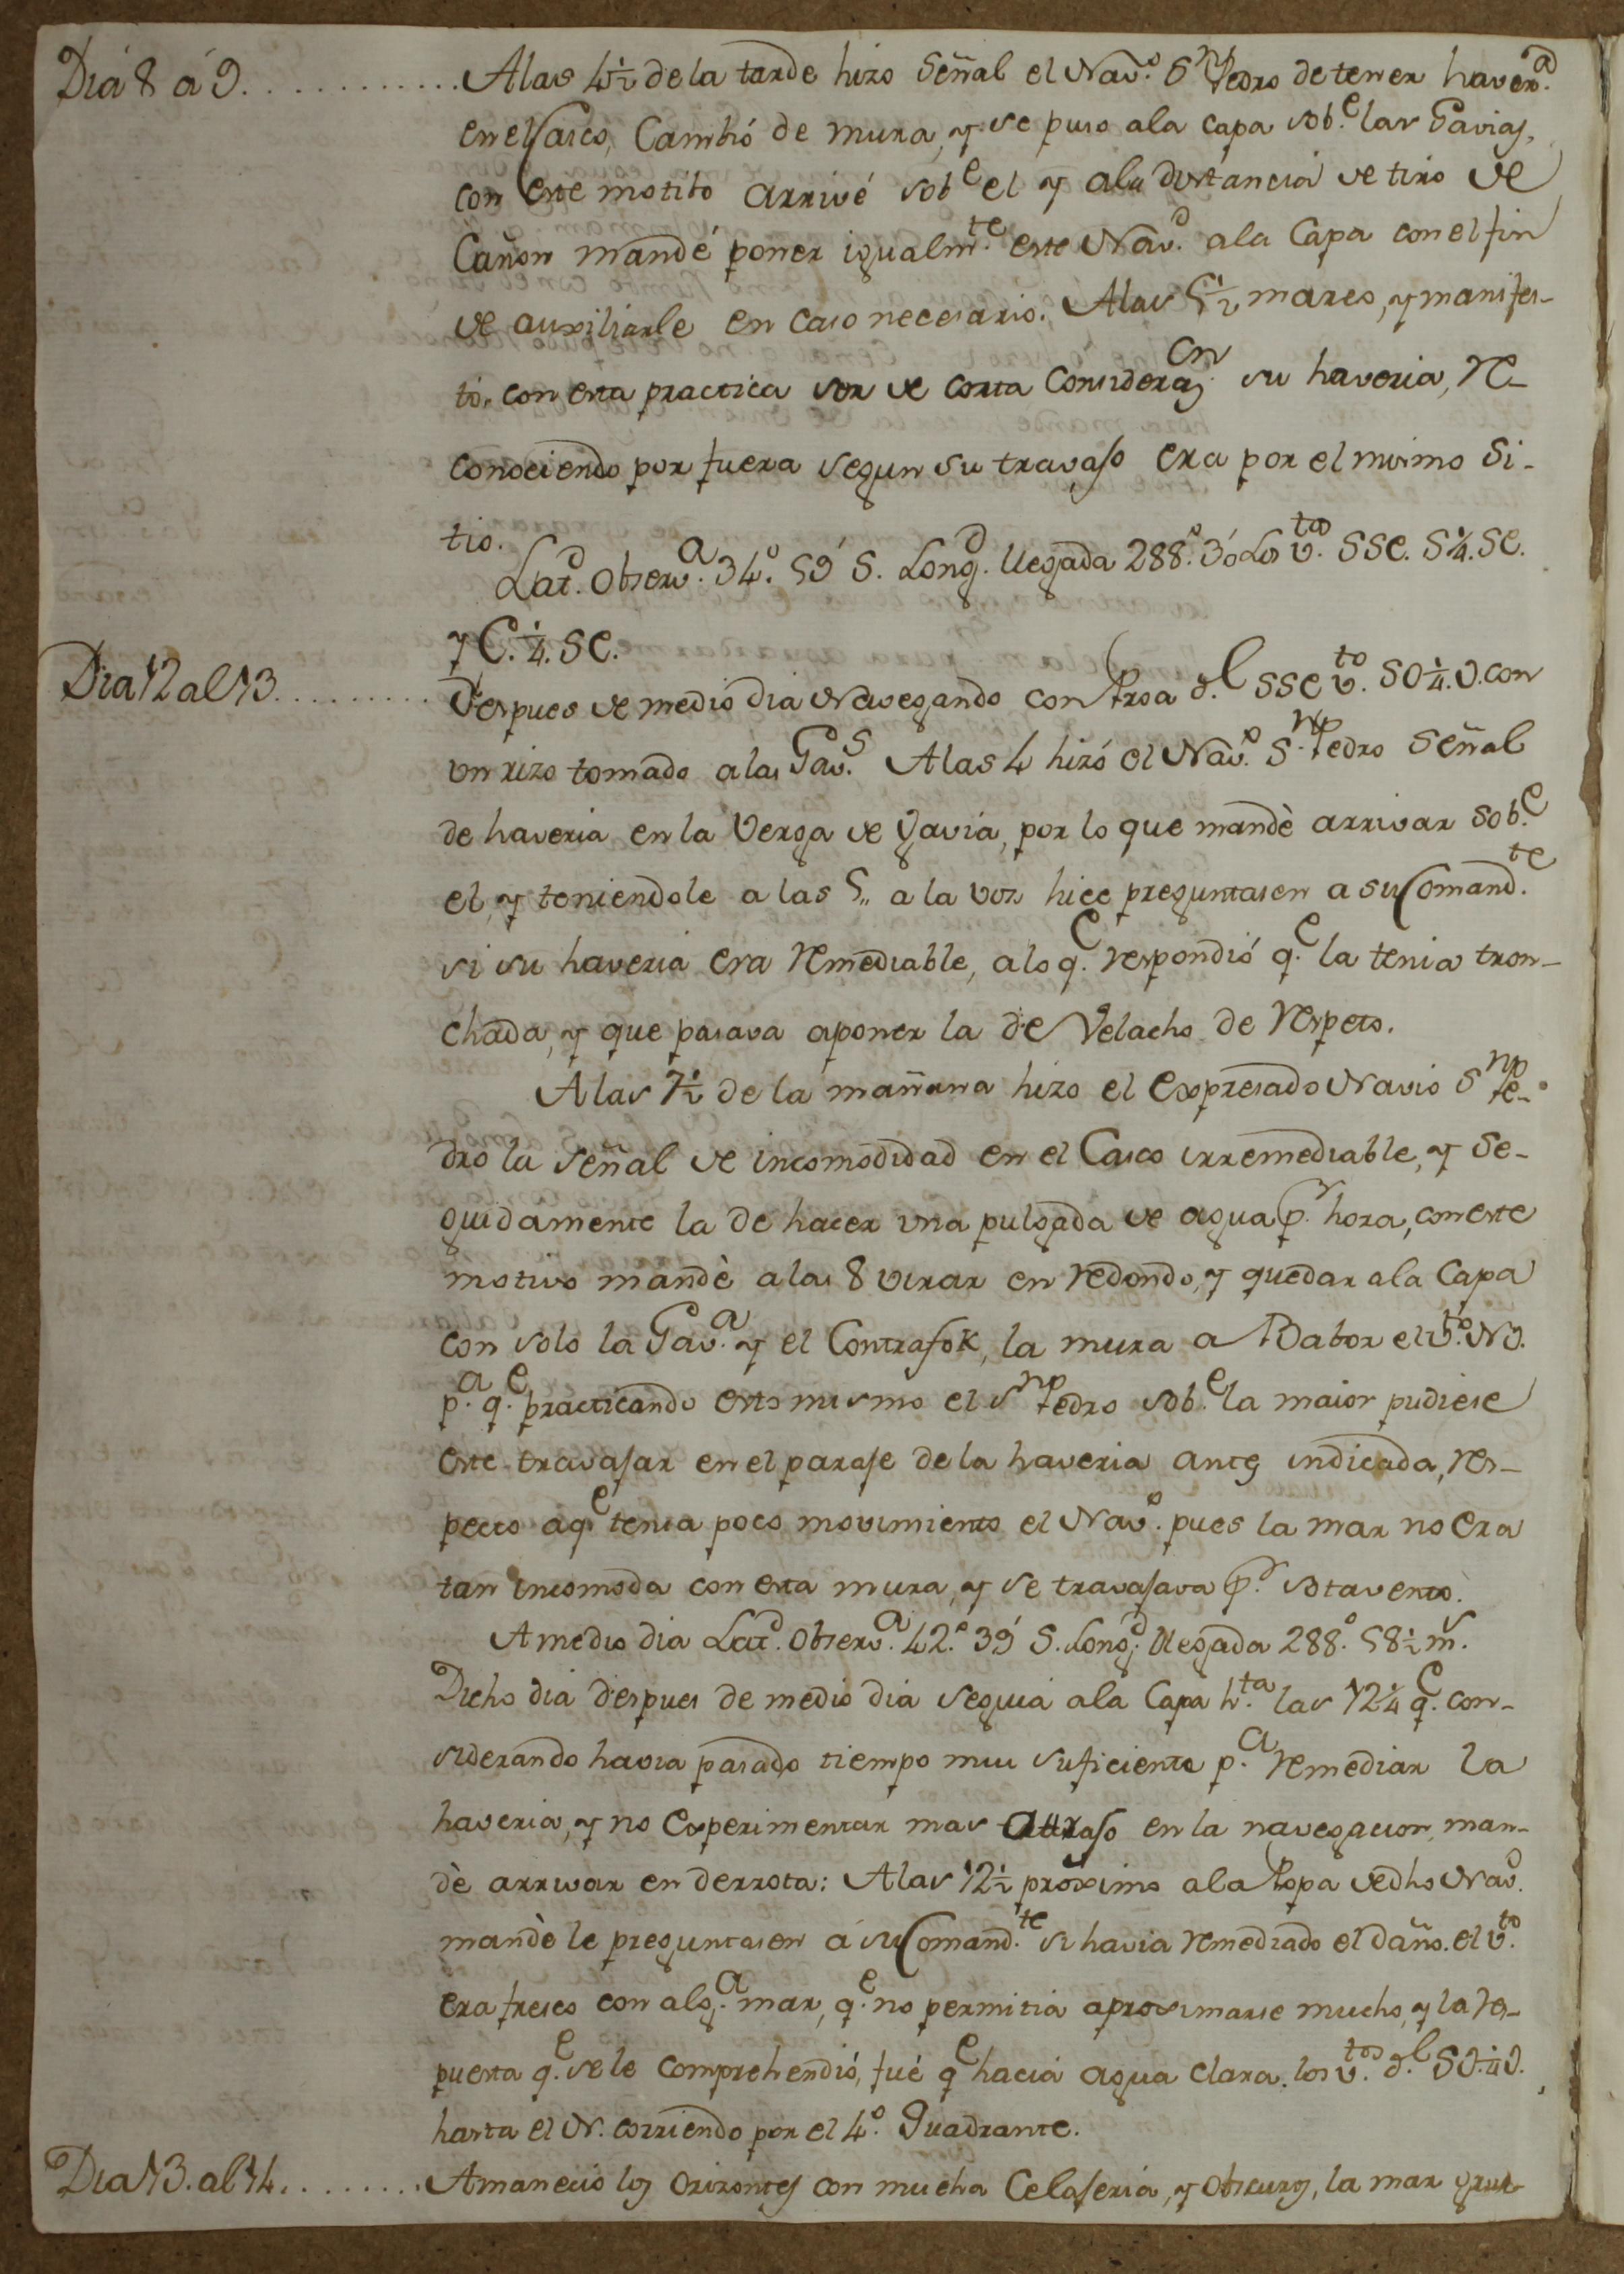 Dia 8 á 9. . . . . . . . . . . . Alas 4½ de la tarde hizo Señal el Nav.º S.n Pedro de tener haver.a
en el Casco, Cambió de mura, y se puso ala capa sob.e las Gavias,
con este motibo arrivé sob.e el y ala distancia de tiro de
Cañon mandé poner igualm.te este Nav.º ala Capa con el fin
de auxiliarle en caso necesario. Alas 5½ mareo, y manifes-
tó, con esta practica ser de corta Considerac.on su haveria, re-
conociendo por fuera segun su travajo era por el mismo Si-
tio.
Lat.d Observ.a 34.º 59' S. Long.d llegada 288.º 30' Los v.tos SSE. S¼.SE.
y E.¼.SE.
Dia 12 al 13. . . . . . . . . Despues de medio dia Navegando con Proa d.l SSE v.to SO¼.O. con
un rizo tomado a las Gav.s Alas 4 hizó el Nav.º S.n Pedro Señal
de haveria en la Verga de Gavia, por lo que mandè arrivar sob.e
el, y teniendole a las 5,, a la voz hice preguntasen a su Comand.te
si su haveria era remediable, alo q.e respondió q.e la tenia tron-
chada, y que pasava aponer la de Velacho de respeto.
Alas 7½ de la mañana hizo el expresado Navio S.n Pe-
dro la Señal de incomodidad en el Casco irremediable, y Se-
guidamente la de hacer una pulgada de agua p.r hora, con este
motivo mandè alas 8 virar en redondo, y quedar ala Capa
con solo la Gav.a y el Contrafok, la mura a Babor el v.to NO.
p.a q.e practicando esto mismo el S.n Pedro sob.e la maior pudiese
este travajar en el paraje de la haveria antes indicada, res-
pecto aq.e tenia poco movimiento el Nav.º pues la mar no era
tan incomoda con esta mura, y se travajava p.r sotavento.
A medio dia Lat.d Observ.a 42.º 39' S. Long.d llegada 288.º 58½ m.s
Dicho dia despues de medio dia seguia ala Capa h.ta las 12¼ q.e con-
siderando havia pasado tiempo mui suficiente p.a remediar la
haveria, y no experimentar mas atraso en la navegacion, man-
dè arrivar en derrota: Alas 12½ próximo ala Popa de dho Nav.º
mandè le preguntasen á su Comand.te si havia remediado el daño. el v.to
era fresco con alg.a mar, q.e no permitia aproximarse mucho, y la res-
puesta q.e se le comprehendió, fué q.e hacia agua clara. los v.tos d.l SO¼O.
hasta el N. corriendo por el 4.º Quadrante.
Dia 13. al 14. . . . . . . . Amaneció los Orizontes con mucha Celajeria, y obscuros, la mar grue-